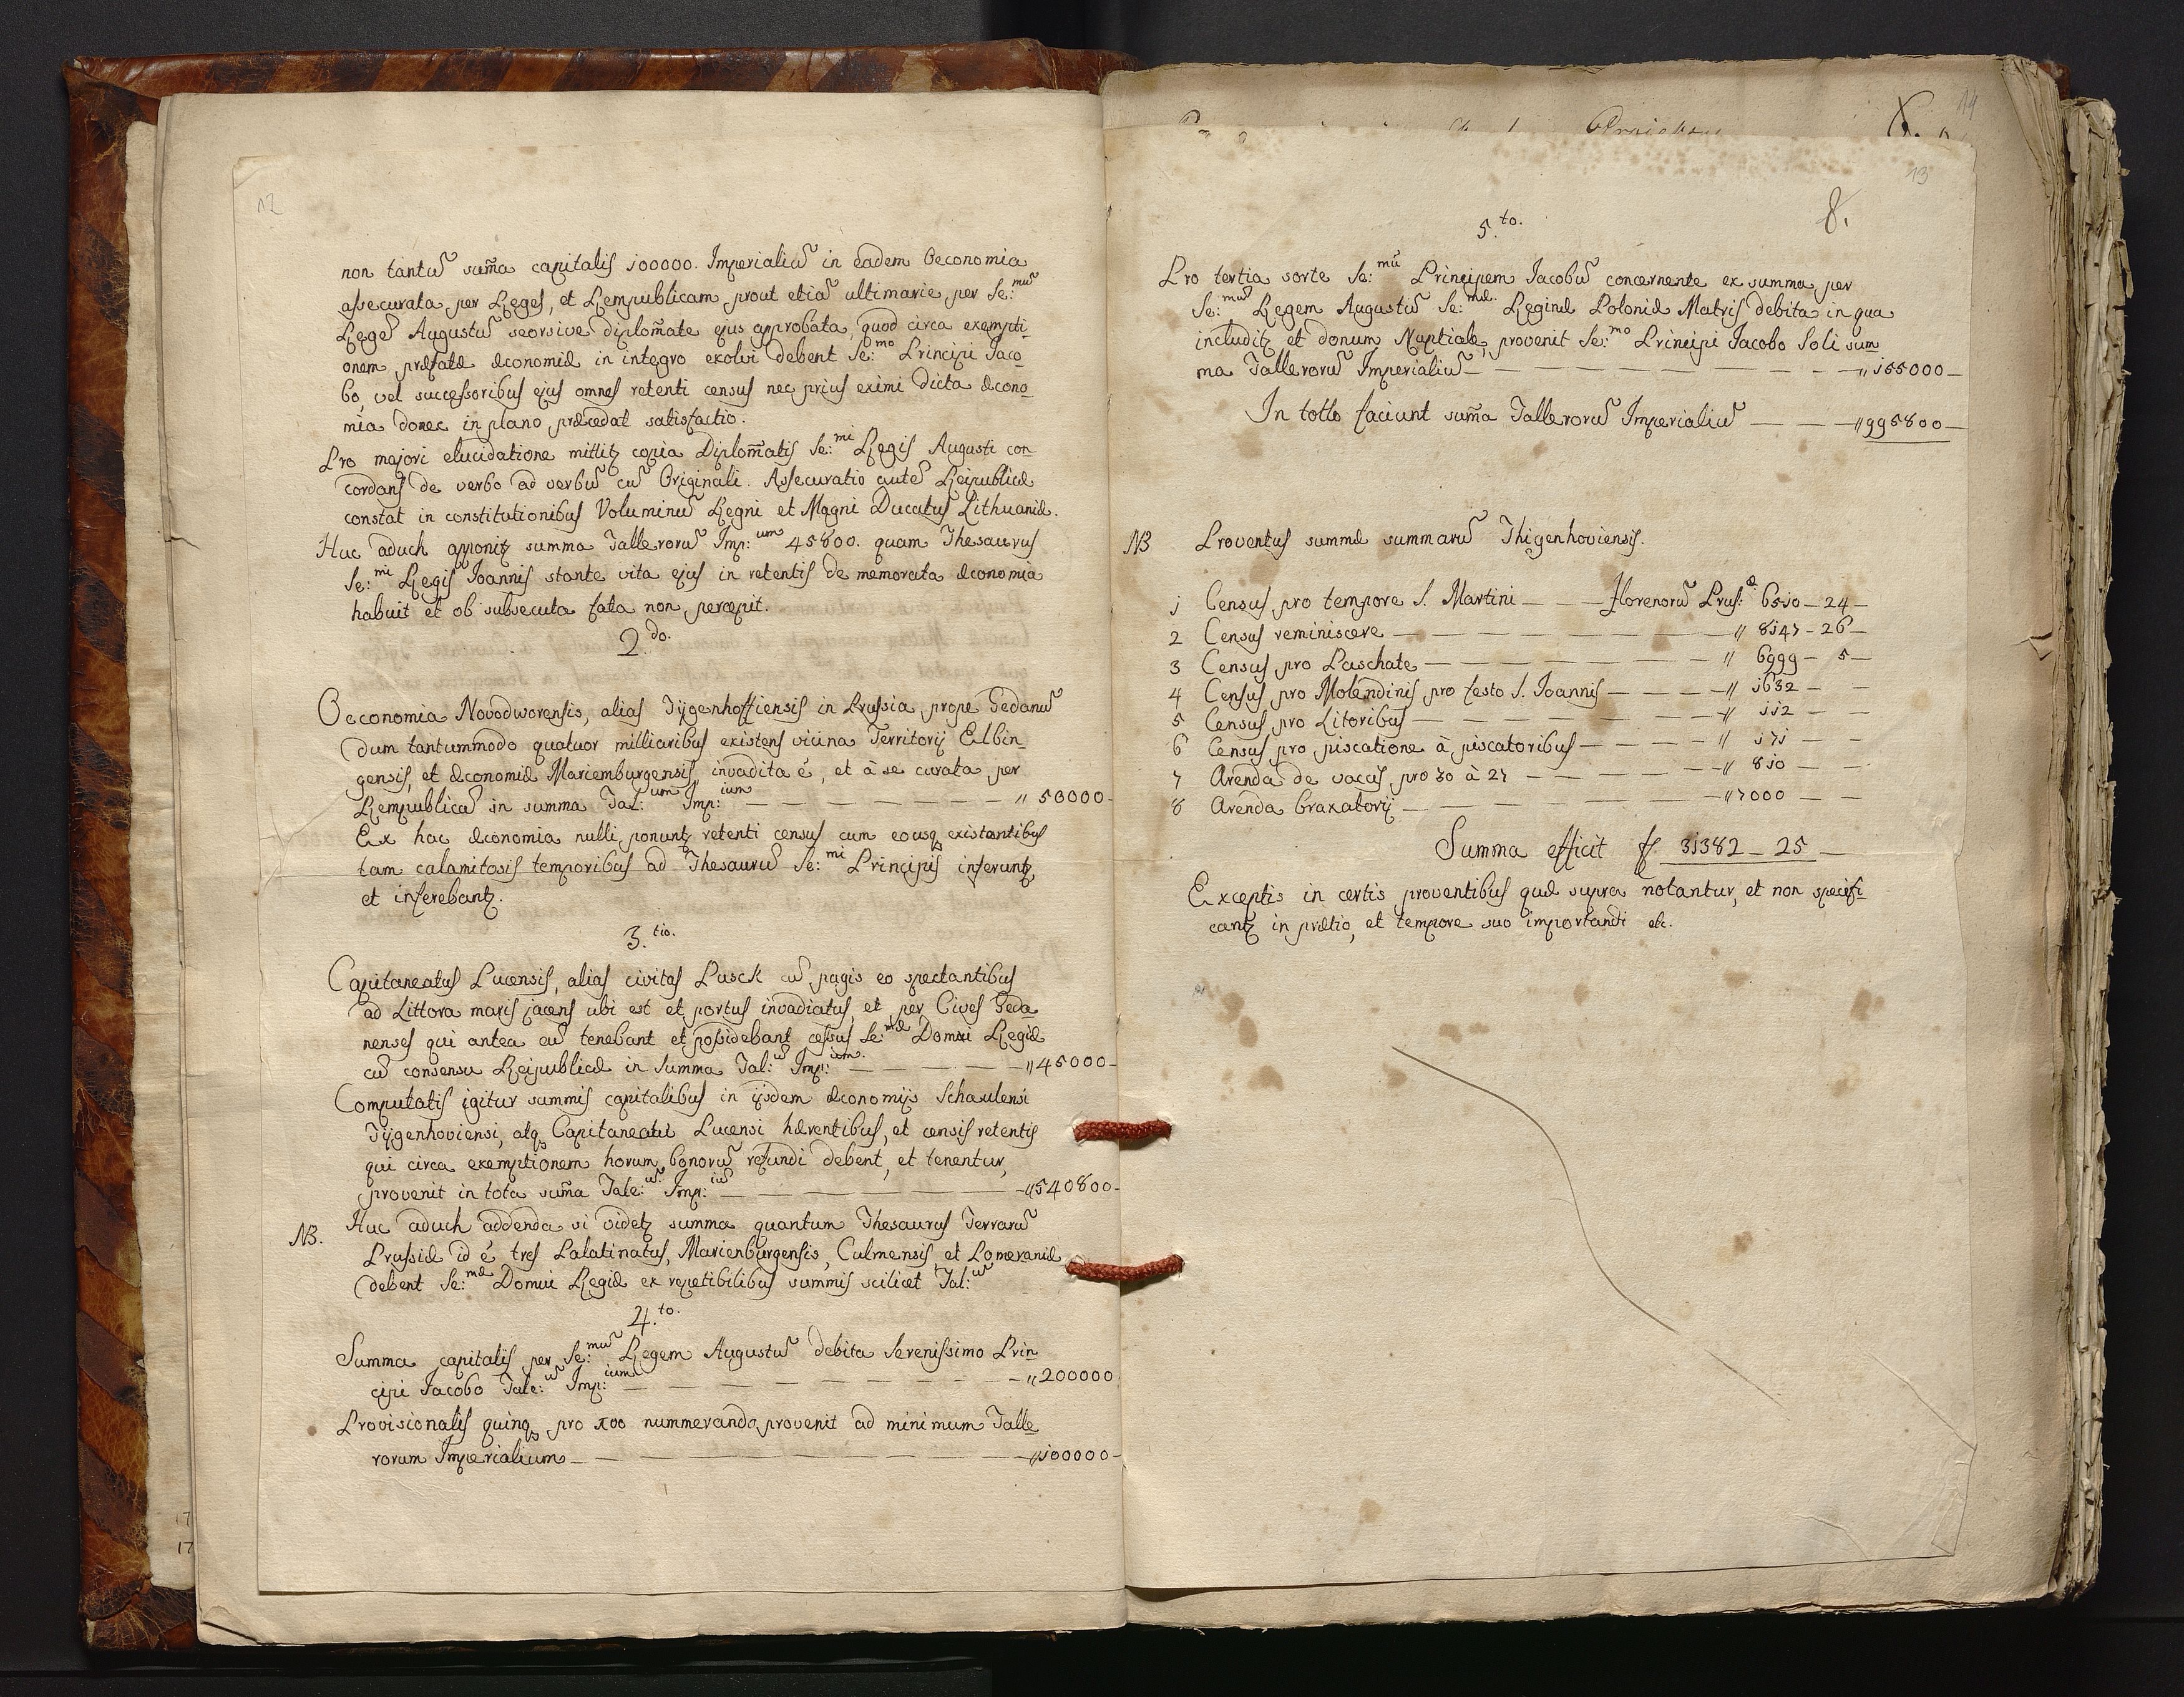 12
non tantũ sum̃a capitalis 100000. Imperialiũ in eadem Oeconomia
assecurata per Reges, et Rempublicam prout etiã ultimarie per Se:mũ
Regẽ Augustũ seorsive diplom̃ate ejus approbata, quod circa exempti-
onem præfatæ œconomiæ in integro exolvi debent Se:mo Principi Jaco-
bo, vel successoribus ejus omnes retenti census nec prius eximi dicta œcono-
mia donec in plano præcedat satisfactio.
Pro majori elucidatione mittitꝫ copia Diplom̃atis Se:mi Regis Augusti con-
cordans de verbo ad verbũ cũ Originali. Assecuratio autẽ Reipublicæ
constat in constitutionibus Voluminũ Regni et Magni Ducatus Lithuaniæ.
Huc aduch apponitꝫ summa Tallerorũ Imp:um 45800. quam Thesaurus
Se:mi Regis Joannis stante vita ejus in retentis de memorata œconomia
habuit et ob subsecuta fata non percepit.
2.do.
Oeconomia Novodworensis, alias Tygenhoffiensis in Prussia prope Gedanũ
dum tantummodo quatuor milliaribus existens vicina Territorij Elbin-
gensis, et œconomiæ Mariemburgensis, invadita ẽ, et à se curata per
Rempublicã in summa Tal:um Imp:ium — — — — — — — " 50000-
Ex hac œconomia nulli ponuntꝫ retenti census cum eousqꝫ existantibus
tam calamitosis temporibus ad Thesaurũ Se:mi Principis inferuntꝫ
et inferebantꝫ.
3.tio.
Capitaneatus Pucensis, alias civitas Pusck cũ pagis eo spectantibus
ad Littora maris jacens ubi est et portus invadiatus, et per Cives Geda-
nenses qui antea eũ tenebant et possidebant cessus Se:mæ Domui Regiæ
cũ consensu Reipublicæ in Summa Tal:ũ Imp:ium. — — — — — "45000-
Computatis igitur summis capitalibus in ijsdem œconomijs Schaulensi
Tygenhoviensi, atqꝫ Capitaneatui Pucensi hærentibus, et censis retentis
qui circa exemptionem horum bonorũ refundi debent, et tenentur,
provenit in tota sum̃a Tale:ũ Imp:iũ — — — — — — — "540800-
NB. Huc aduch addenda si videtꝫ summa quantum Thesaurus Terrarũ
Prussiæ id ẽ tres Palatinatus, Marienburgensis, Culmensis, et Pomeraniæ
debent Se:mæ Domui Regiæ ex repetibilibus summis scilicet Tal:ũ
4.to.
Summa capitalis per Se:mũ Regem Augustũ debita Serenissimo Prin-
cipi Jacobo Tale:ũ Imp:ium — — — — — — — — "200000
Provisionalis quinqꝫ pro 100 nummerando provenit ad minimum Talle-
rorum Imperialium — — — — — — — — — "100000-
14
13
8.
5.to.
Pro tertia sorte Se:mũ Principem Jacobũ concernente ex summa per
Se:mũ Regem Augustũ Se:mæ. Reginæ Poloniæ Matris debita in qua
includitꝫ et donum Nuptiale, provenit Se:mo Principi Jacobo Soli sum-
ma Tallerorũ Imperialiũ — — — — — — — — — — "155000-
In totto faciunt sum̃a Tallerorũ Imperialiũ — — — "995800-
NB Proventus summæ summarũ Thigenhoviensis.
1 Census pro tempore S. Martini — — — florenorũ Prus:æ 6510 - 24 -
2 Census reminiscere — — — — — — — — — " 8147 - 26 -
3 Census pro Paschate — — — — — — — — " 6999 - 5 -
4 Census pro Molendinis pro festo S. Joannis — — — — " 1632 - -
5 Census pro Litoribus — — — — — — — — " 112 - -
6 Census pro piscatione à piscatoribus — — — — — " 171 - -
7 Arenda de vaccis pro 30 à 27 — — — — — — " 810 - -
8 Arenda braxatorij — — — — — — — — — "7000 - -
Summa efficit ƒ 31382 - 25 -
Exceptis in certis proventibus quæ supra notantur, et non specifi-
cantꝫ in prætio, et tempore suo importandi etc.